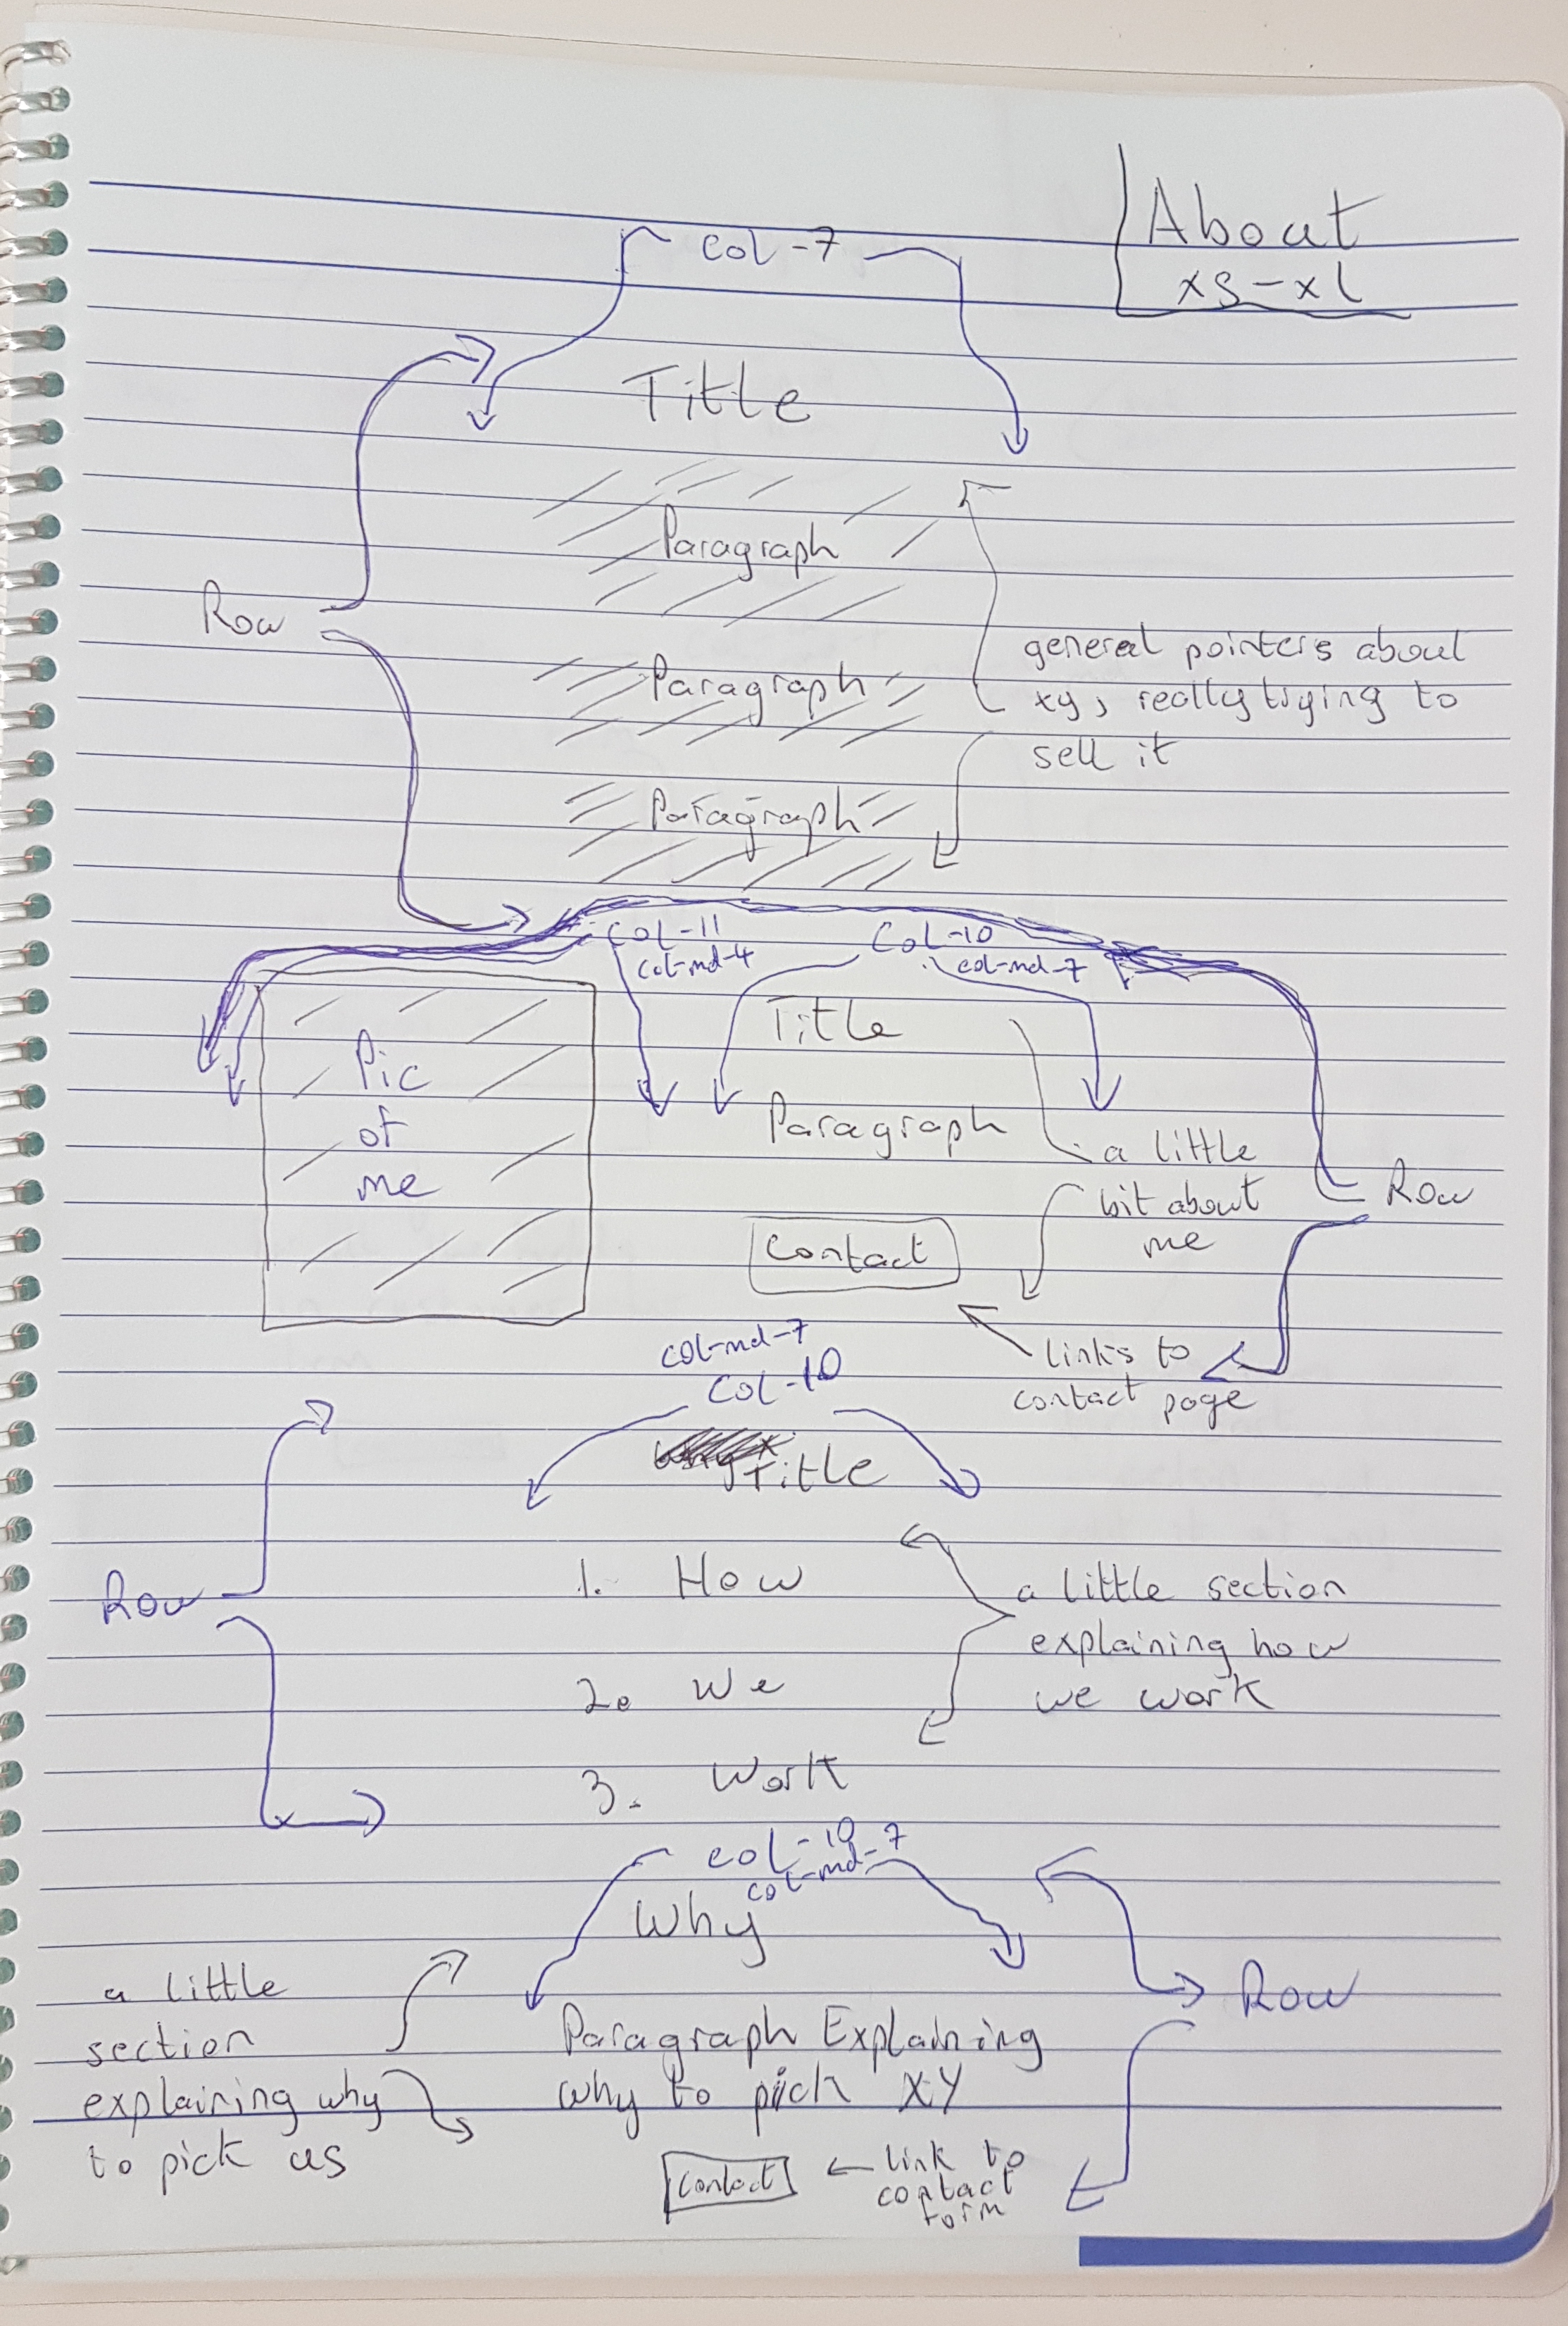 About
xs-xl
col-7
Title
Paragraph
Row
general pointers about
xy, really trying to
sell it
Paragraph
Paragraph
col-11
col-md-4
Col-10
col-md-7
Pic
of
me
Title
Paragraph
a little
bit about
me
Row
Contact
links to
contact page
col-md-7
Col-10
Title
Row
1. How
a little section
explaining how
we work
2. We
3. Work
col-10
col-md-7
Why
Row
a little
section
explaining why
to pick us
Paragraph Explaining
why to pick XY
Contact
link to
contact
form